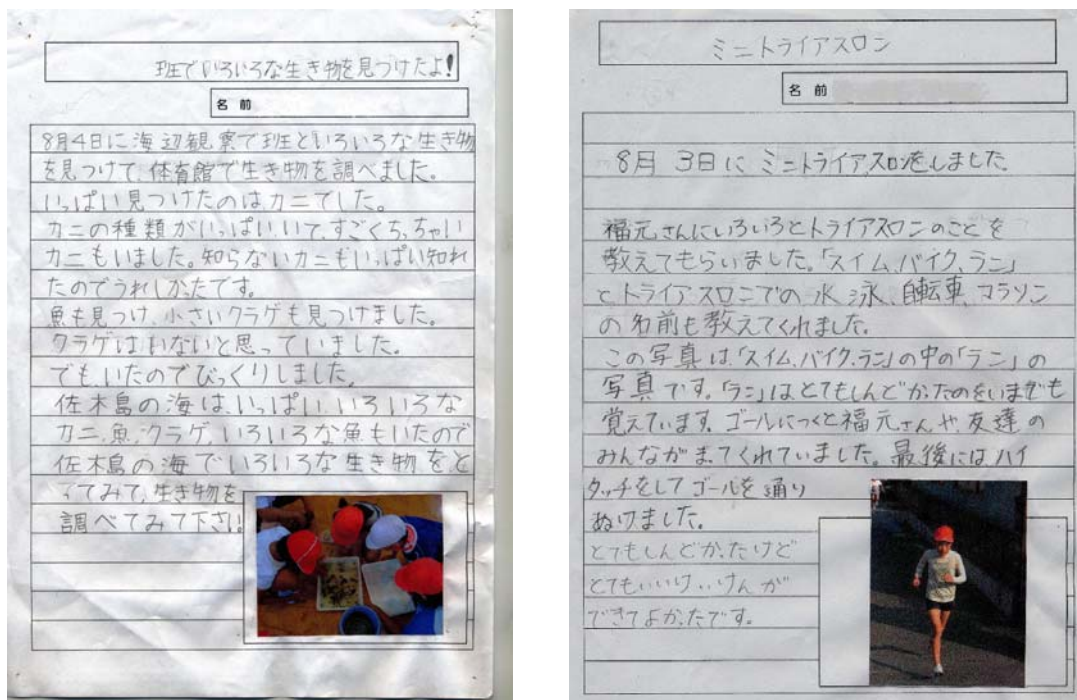 班でいろいろな生き物を見つけたよ!
名前
8月4日に海辺観察で班といろいろな生き物
を見つけて、体育館で生き物を調べました。
いっぱい見つけたのはカニでした。
カニの種類がいっぱいいて、すごくちっちゃい
カニもいました。知らないカニもいっぱい知れ
たのでうれしかたです。
魚も見つけ、小さいクラゲも見つけました。
クラゲはいないと思っていました。
でも、いたのでびっくりしました。
佐木島の海は、いっぱい、いろいろな
カニ、魚、クラゲ、いろいろな魚もいたので
佐木島の海でいろいろな生き物をと
ってみて、生き物を
調べてみて下さい
ミニトライアスロン
名前
8月 3日に ミニトライアスロンをしました
福元さんにいろいろとトライアスロンのことを
教えてもらいました。「スイム、バイク、ラン」
とトライアスロンでの水泳、自転車、マラソン
の名前も教えてくれました。
この写真は、「スイム、バイク、ラン」の中の「ラン」の
写真です。「ラン」はとてもしんどかったのをいまでも
覚えています。ゴールにつくと福元さんや、友達の
みんながまってくれていました。最後には、ハイ
タッチをしてゴールを通り
ぬけました。
とてもしんどかったけど
とてもいいけいけんが
できてよかったです。